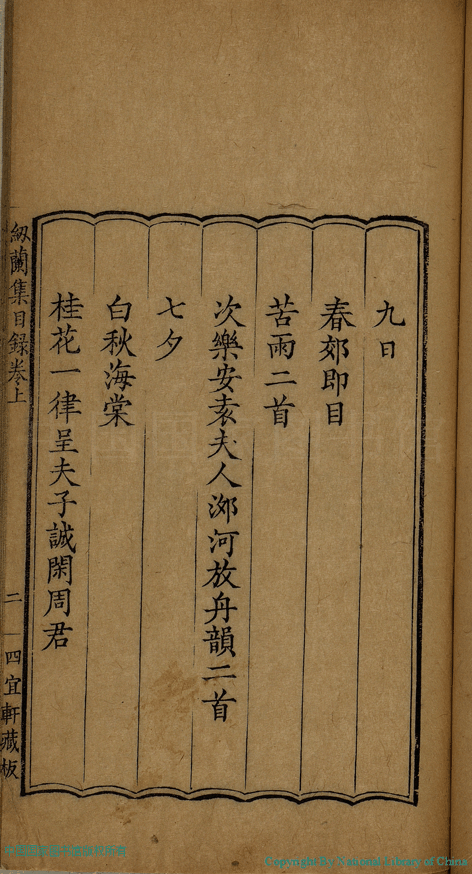 九日
春郊即目
苦雨二首
次樂安袁夫人邠河放舟韻二首
七夕
白秋海棠
桂花一律呈夫子誠閑周君
紉蘭集目錄卷上
二
四宜軒藏板
Copyright By National Library of China